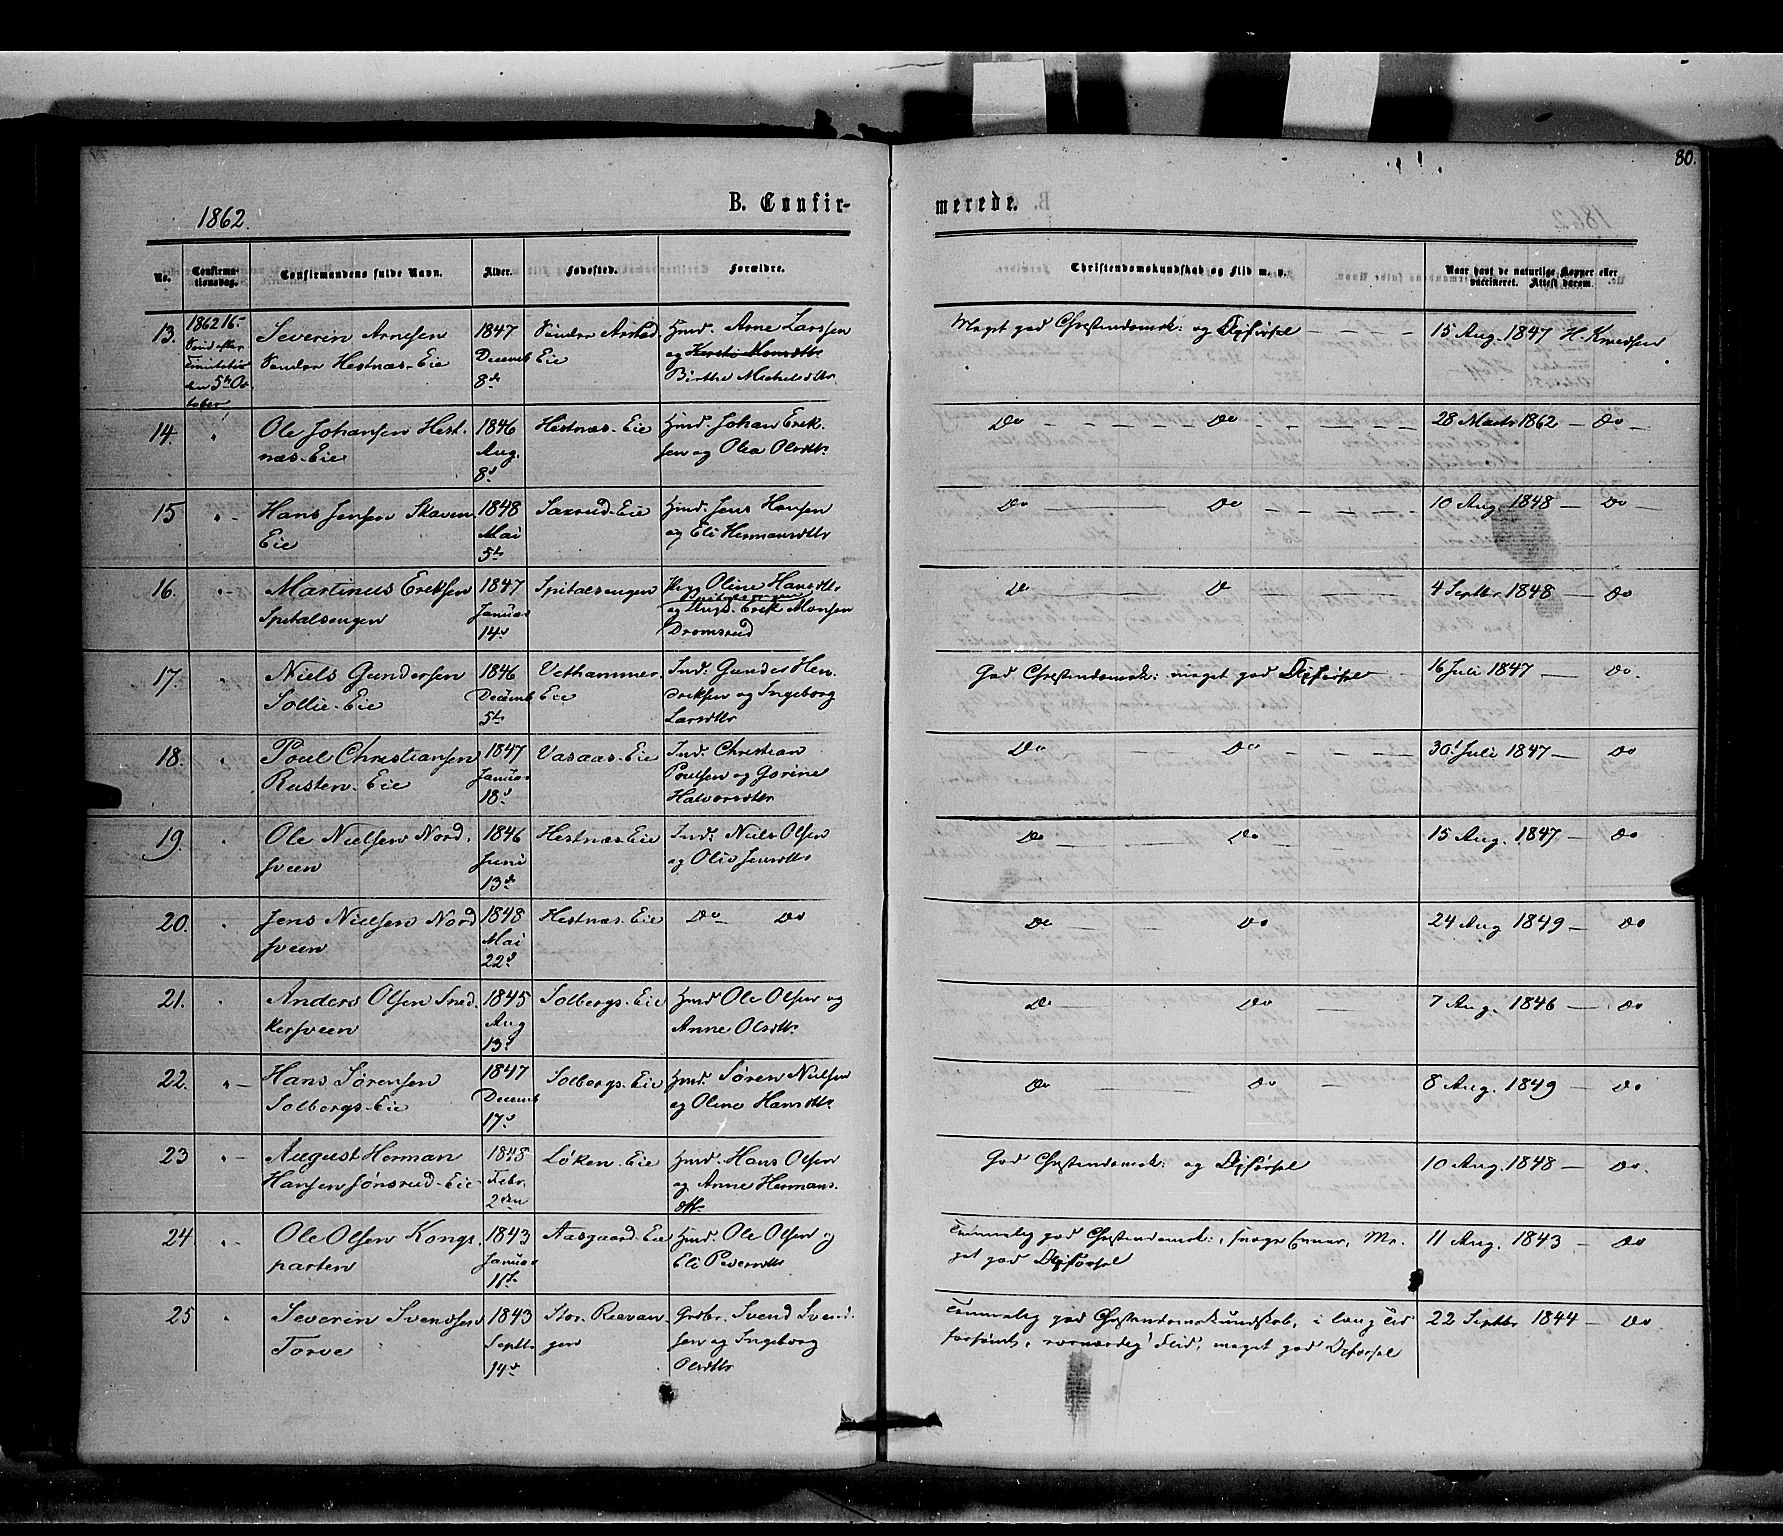 80.
1862.
B. Confir-
merede.
No.
Confirma-
tionsdag.
Confirmandens fulde Navn.
Alder.
Fødested.
Forældre.
Christendomskundskab og Flid m. v.
Naar havt de naturlige Kopper eller
vaccineret. Attest derom.
13. 1862 16 Severin Arnesen 1847 Søndre Aasted Hmd. Arne Larssen
Søndre Hestnæs-Eie Decemb Eie og
den 5te Oc- 8de Birthe Michelsdttr
tober
Meget god Christendomsk: og Opførsel 15 Aug. 1847 H. Knudsen
14. " Ole Johansen Hest- 1846 Hestnæs-Eie Hmd. Johan Erik-
næs-Eie Aug. sen og Olea Olsdttr
8de
Do Do 28 Marts 1862 Do
15 " Hans Jensen Skaven 1848 Saxrud-Eie Hmd. Jens Hansen
Eie Mai og Eli Hermansdttr
5te
Do Do 10 Aug. 1848 Do
16. " Martinus Eriksen 1847 Spitalsengen Pige Oline Hansdttr
Spitalsengen
Spitalsengen Januar og Ungk. Erik Monsen
14de Dromsrud
Do D 4 Septbr 1848 Do
17. Niels Gundersen 1846 Vethammer. Ind. Gunder Hen-
Sollie-Eie Decemb Eie driksen og Ingeborg
5te Larsdttr
God Christendomsk: meget god Opførsel 16 Juli 1847 Do
18. " Poul Christiansen 1847 Vasaas-Eie Ind. Christian
Rusten-Eie Januar Poulsen og Gorine
18de Halvorsdttr
Do Do 30 Juli 1847 Do
19. " Ole Nielsen Nord- 1846 Hestnæs-Eie Ind. Niels Olsen
sveen Juni og Oliv Jensdttr
13de
Do Do 15 Aug. 1847 Do
20. " Jens Nielsen Nord 1848 Hestnæs-Eie Do Do
sveen Mai
22de
Do Do 24 Aug 1849 Do
21. " Anders Olsen Sned- 1845 Solbergs-Eie Hmd Ole Olsen og
kersveen Aug Anne Olsdttr
13de
Do Do 7 Aug. 1846 Do
22. " Hans Sørensen 1847 Solbergs-Eie Hmd. Søren Nielsen
Solbergs-Eie Decemb og Oline Hansdttr
17de
Do Do 8 Aug. 1849 Do
23 " August Herman 1848 Løken-Eie Hmd. Hans Olsen
Hansen Jønsrud-Eie Febr. og Anne Hermans-
2den dttr
God Christendomsk: og Opførsel 10 Aug. 1848 Do
24 " Ole Olsen Kongs- 1843 Aasgaard-Eie Hmd. Ole Olsen og
parten Januar Eli Pedersdttr
Temmelig god Christendomsk:, svage Evner, Me- 11 Aug. 1843 Do
get god Opførsel
25 " Severin Svendsen 1843 Stor-Reevan- Grdbr. Svend Svend-
Torve Septbr gen sen og Ingeborg
14de Olsdttr
Temmelig god Christendomskundskab, i lang Tid 22 Septbr 1844 Do
forsømt, Flid, meget god Opførsel